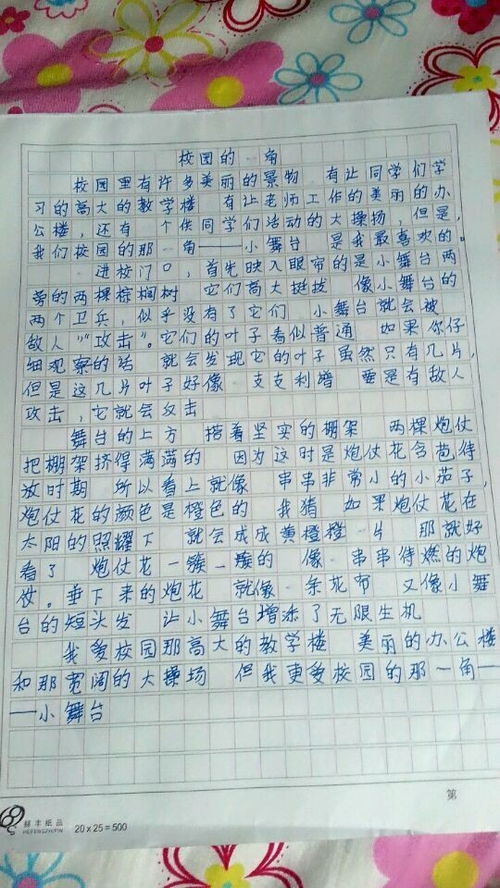 校园的一角
校园里有许多美丽的景物 有让同学们学
习的高大的教学楼 有让老师工作的美丽的办
公楼，还有一个供同学们活动的大操场，但是，
我们校园的那一角——小舞台 是我最喜欢的。
一进校门口，首先映入眼帘的是小舞台两
旁的两棵棕榈树 它们高大挺拔 像小舞台的
两个卫兵，似乎没有了它们 小舞台就会被
敌人"攻击"。它们的叶子看似普通 如果你仔
细观察的话 就会发现它的叶子虽然只有几片，
但是这几片叶子好像一支支利箭 要是有敌人
攻击，它就会反击
舞台的上方 搭着坚实的棚架 两棵炮仗
把棚架挤得满满的 因为这时是炮仗花含苞待
放时期 所以看上就像一串串非常小的小茄子，
炮仗花的颜色是橙色的 我猜 如果炮仗花在
太阳的照耀下 就会成成黄橙橙一片 那就好
看了 炮仗花一簇一簇的 像一串串待燃的炮
仗。垂下来的炮花 就像一条花布 又像小舞
台的短头发 让小舞台增添了无限生机
我爱校园那高大的教学楼 美丽的办公楼
和那宽阔的大操场 但我更爱校园的那一角—
—小舞台
第
20x25=500